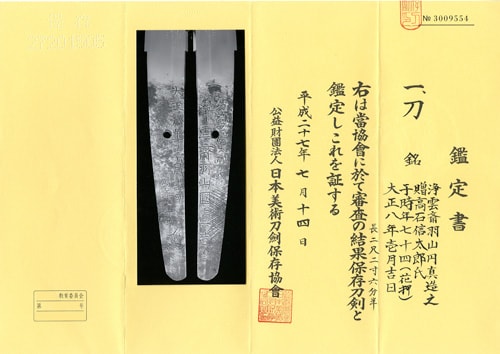 № 3009554
鑑定書
一、刀 銘
浄雲斎羽山円真造之
贈高石信太郎氏
于時年七十四(花押)
大正八年壱月吉日
長二尺二寸六分半
右は當協會に於て審査の結果保存刀剣と
鑑定しこれを証する
平成二十七年七月十四日
公益財團法人 日本美術刀劍保存協會
教育委員会
第 号